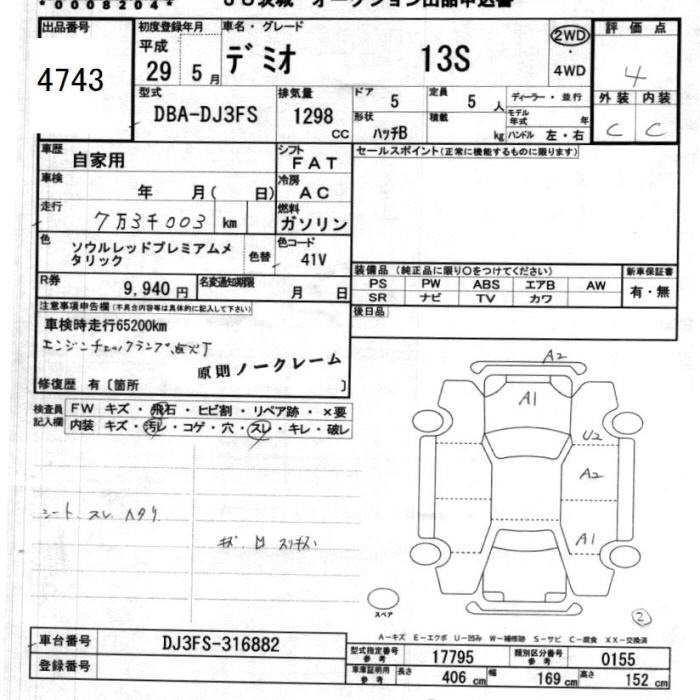 *00008204*
JU茨城 オークション出品申込書
出品番号 初度登録年月 車名・グレード 2WD 評価点
4743 平成 29 5 月 デミオ 13S ・ 4WD 4
型式 排気量 ドア 5 定員 5 人 ディーラー・並行 外装 内装
DBA-DJ3FS 1298 CC 形状 ハッチB 積載 kg モデル年式 年 ハンドル 左・右 C C
車歴 自家用 シフト FAT セールスポイント(正常に機能するものに限ります)
車検 年 月( 日) 冷房 AC
走行 7万3千003 km 燃料 ガソリン
色 ソウルレッドプレミアムメ 色替 色コード
タリック 41V
R券 9,940 円 名変通知期限 月 日
装備品(純正品に限り○をつけてください) 新車保証書
PS PW ABS エアB AW 有・無
SR ナビ TV カワ
後日品
注意事項申告欄(不具合内容等は具体的に記入して下さい)
車検時走行65200km
エンジンチェックランプ点灯
原則ノークレーム
修復歴 有〔箇所 〕
検査員 FW キズ・飛石・ヒビ割・リペア跡・×要
記入欄 内装 キズ・汚レ・コゲ・穴・スレ・キレ・破レ
シート スレ ヘタリ
A2
A1
U2
A2
A1
スペア
2
A-キズ E-エクボ U-凹み W-補修跡 S-サビ C-腐食 XX-交換済
車台番号 DJ3FS-316882 型式指定番号 参考 17795 類別区分番号 参考 0155
登録番号 車庫証明用 参考 長さ 406 cm 幅 169 cm 高さ 152 cm